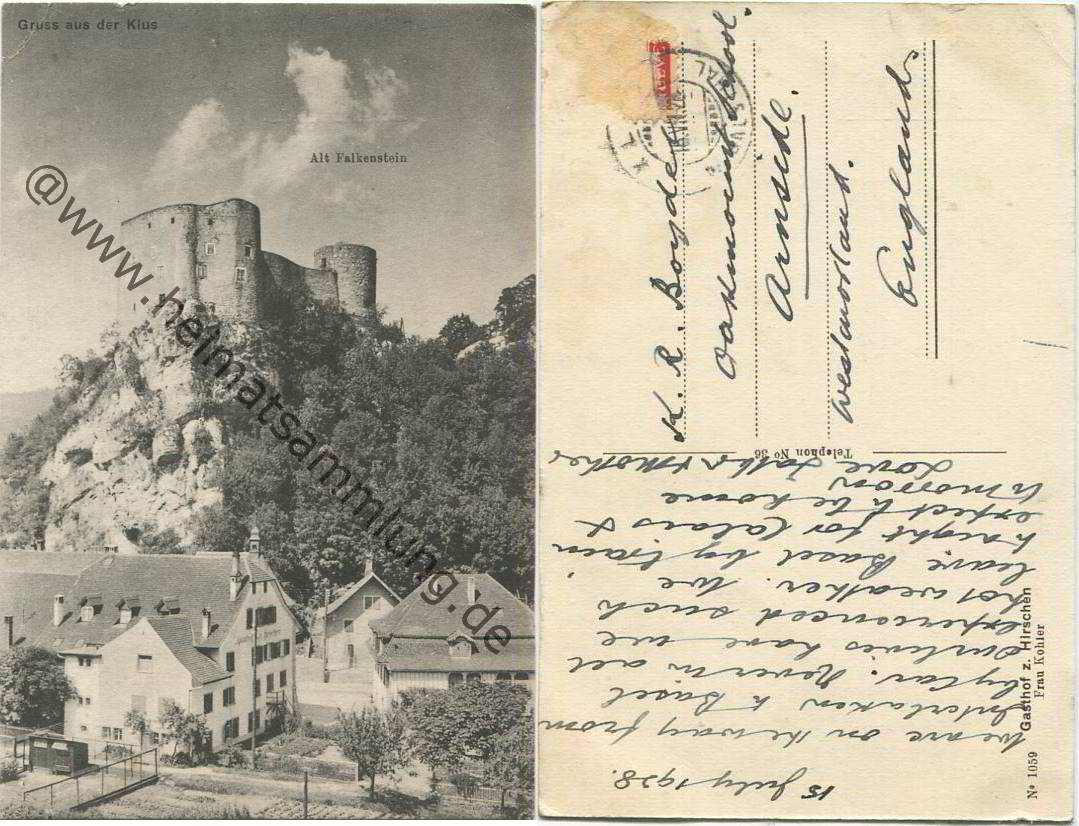 Gruss aus der Klus
Alt Falkenstein
@www.heimatsammlung.de
15 July 1928.
We are on the way from
Interlaken to Basel
by car. Never in all
our lives have we
experienced such
hot weather. We
leave Basel by train
tonight for Calais &
expect to be home
tomorrow
Love Father & Mother
K. R. Boyde
Oakmount School.
Arnside.
Westmorland.
England.
Telephon No 36
No 1059
Gasthof z. Hirschen
Frau Kohler